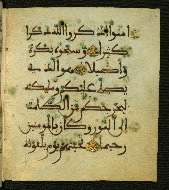 امنوا اذكروا الله ذكرا
كثيرا وسبحوه بكرة
واصيلا هو الذي
يصلي عليكم وملئكته
ليخرجكم من الظلمت
الى النور وكان بالمومنين
رحيما تحيتهم يوم يلقونه